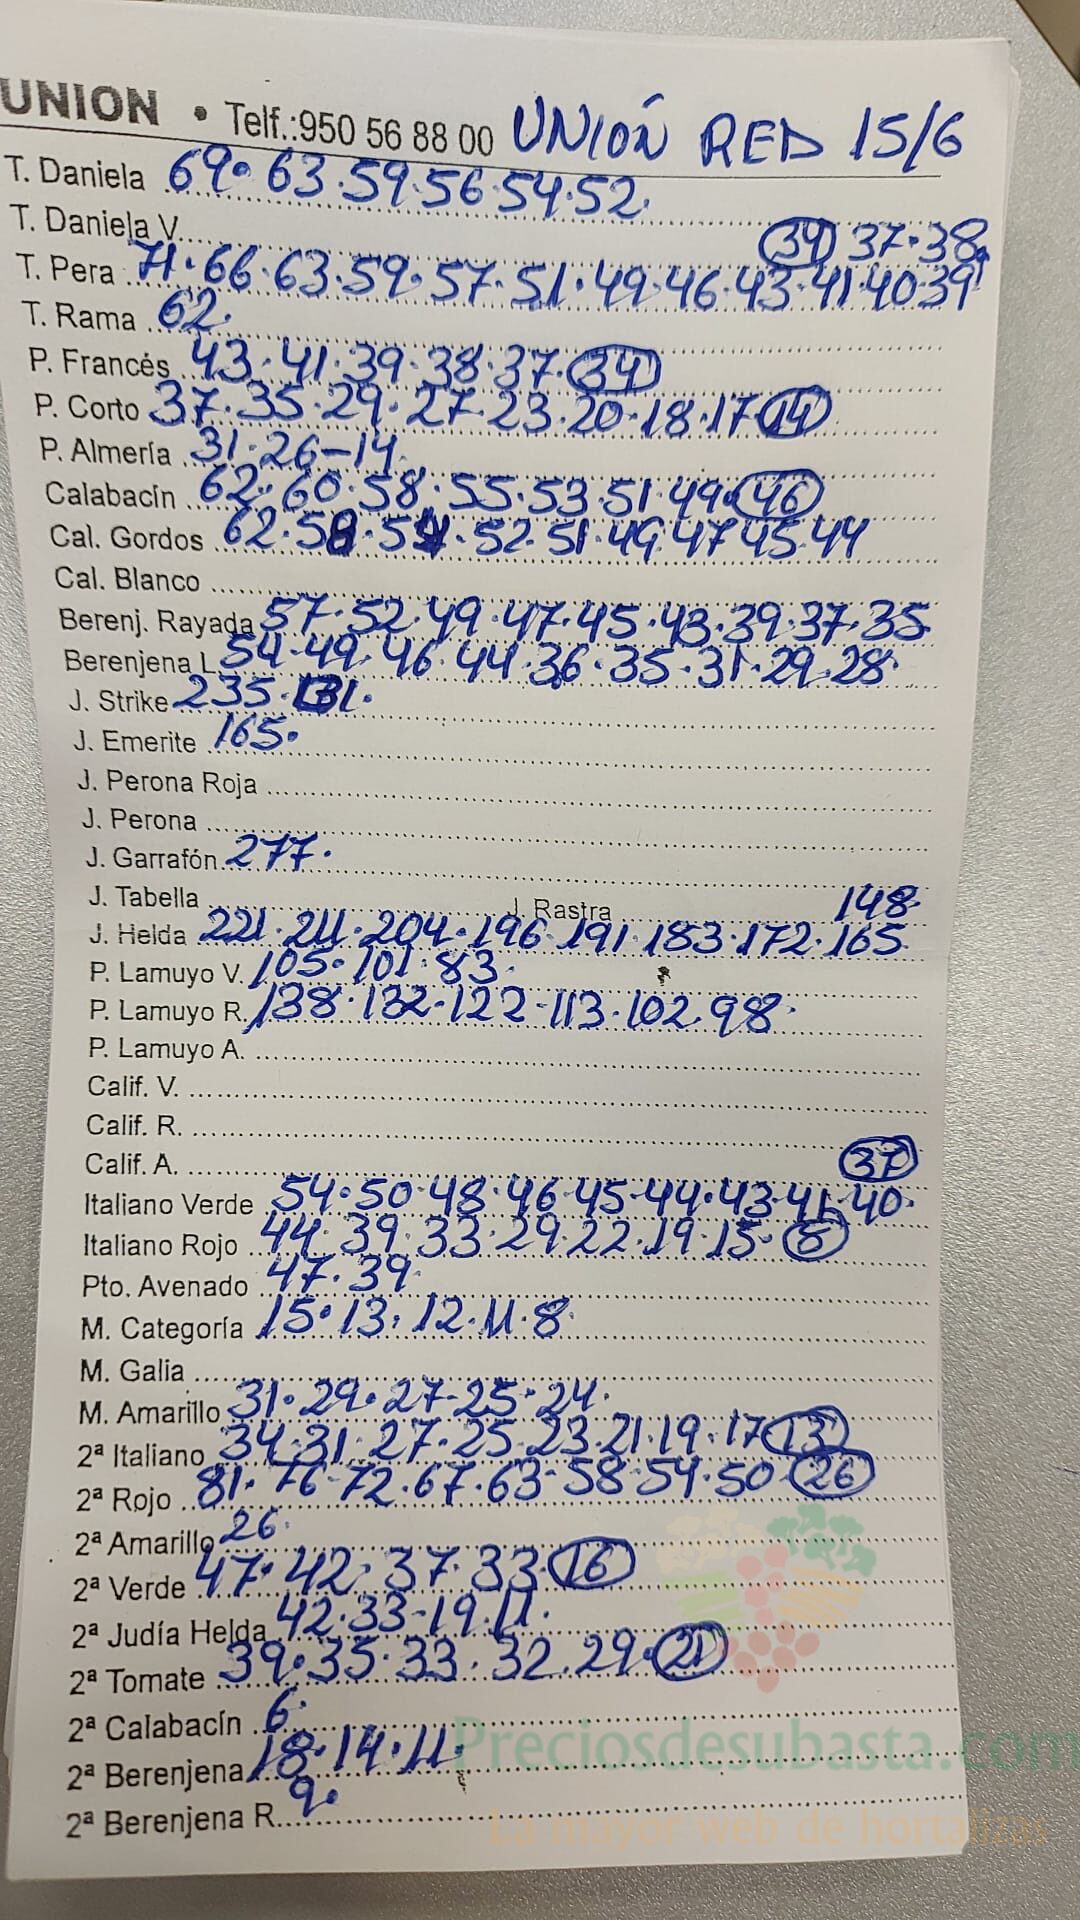 UNION • Telf.:950 56 88 00 UNIOÑ RED 15/6
T. Daniela 69. 63.59.56.54.52.
T. Daniela V. (34) 37.38
T. Pera 71.66.63.59.57.51.49.46.43.41.40.39
T. Rama 62.
P. Francés 43.41.39.38.37.(34)
P. Corto 37.35.29.27.23.20.18.17(14)
P. Almería 31.26-14.
Calabacín 62.60.58.55.53.51.49.(46)
Cal. Gordos 62.58.54.52.51.49.47 45.44
Cal. Blanco
Berenj. Rayada 57.52.49.47.45.43.39.37.35
Berenjena L 54.49.46.44.36.35.31.29.28.
J. Strike 235.131.
J. Emerite 165.
J. Perona Roja
J. Perona
J. Garrafón 277.
J. Tabella J. Rastra 148.
J. Helda 221.211.204.196.191.183.172.165
P. Lamuyo V. 105.101.83.
P. Lamuyo R. 138.132-122-113.102.98.
P. Lamuyo A.
Calif. V.
Calif. R.
Calif. A. (37)
Italiano Verde 54.50.48.46.45-44.43.41.40.
Italiano Rojo 44.39.33.29.22.19.15.(8)
Pto. Avenado 47.39.
M. Categoría 15.13.12.11.8.
M. Galia
M. Amarillo 31.29.27-25.24.
2ª Italiano 34.31.27.25.23.21.19.17(13)
2ª Rojo 81.76-72.67.63-58-54.50(26)
2ª Amarillo 26.
2ª Verde 47.42.37.33.(16)
2ª Judía Helda 42.33-19.11.
2ª Tomate 39.35.33.32.29.(21)
2ª Calabacín 6.
2ª Berenjena 18.14.11.
2ª Berenjena R. 9.
Preciosdesubasta.com
La mayor web de hortalizas